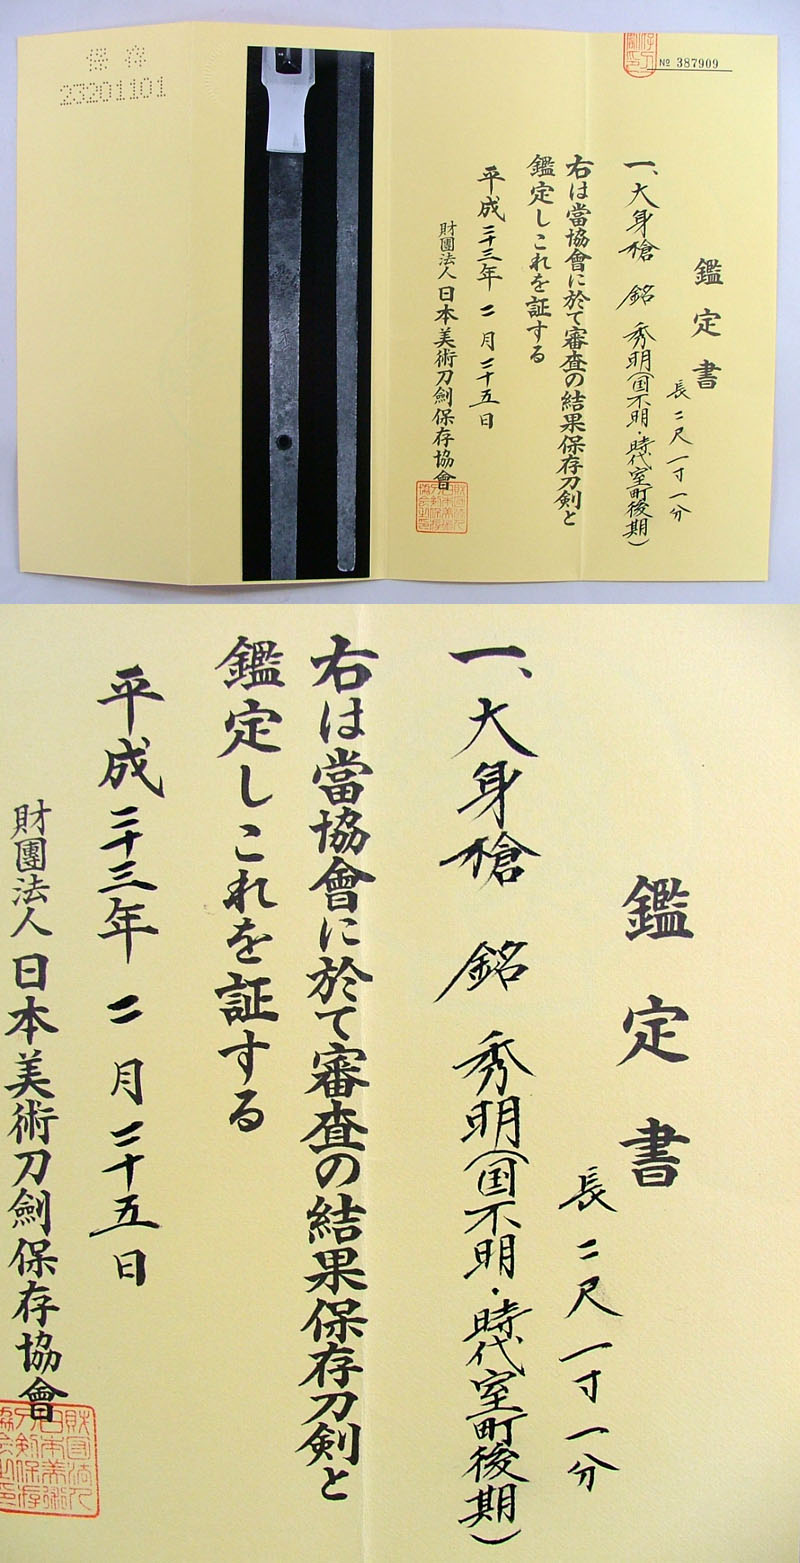 保存
23201101
№ 387909
鑑定書
一、大身槍 銘 秀明(国不明・時代室町後期)
長二尺一寸一分
右は當協會に於て審査の結果保存刀剣と
鑑定しこれを証する
平成二十三年 二月二十五日
財團法人 日本美術刀劍保存協會
鑑定書
長二尺一寸一分
一、大身槍 銘 秀明(国不明・時代室町後期)
右は當協會に於て審査の結果保存刀剣と
鑑定しこれを証する
平成二十三年 二月二十五日
財團法人 日本美術刀劍保存協會